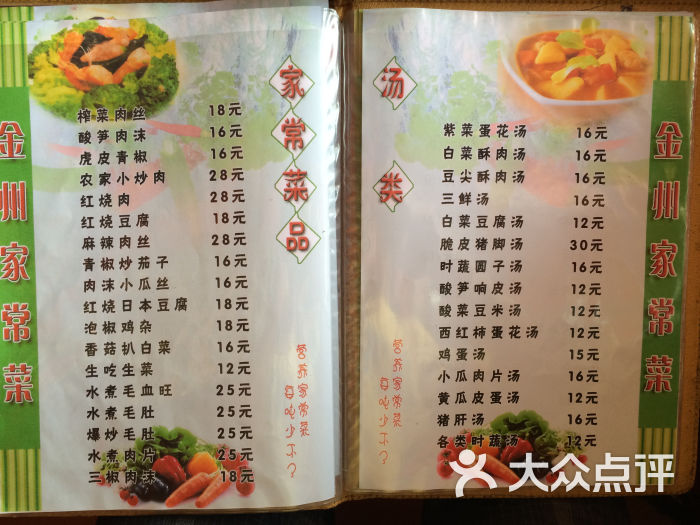 金州家常菜
家常菜品
榨菜肉丝 18元
酸笋肉沫 16元
虎皮青椒 16元
农家小炒肉 28元
红烧肉 28元
红烧豆腐 18元
麻辣肉丝 28元
青椒炒茄子 16元
肉沫小瓜丝 16元
红烧日本豆腐 18元
泡椒鸡杂 18元
香菇扒白菜 16元
生吃生菜 12元
水煮毛血旺 25元
水煮毛肚 25元
爆炒毛肚 25元
水煮肉片 25元
三椒肉沫 18元
营养家常菜
每吃少不?
汤类
紫菜蛋花汤 16元
白菜酥肉汤 16元
豆尖酥肉汤 16元
三鲜汤 16元
白菜豆腐汤 12元
脆皮猪脚汤 30元
时蔬圆子汤 16元
酸笋响皮汤 12元
酸菜豆米汤 12元
西红柿蛋花汤 12元
鸡蛋汤 15元
小瓜肉片汤 16元
黄瓜皮蛋汤 12元
猪肝汤 16元
各类时蔬汤 12元
营养家常菜
每吃少不?
金州家常菜
大众点评